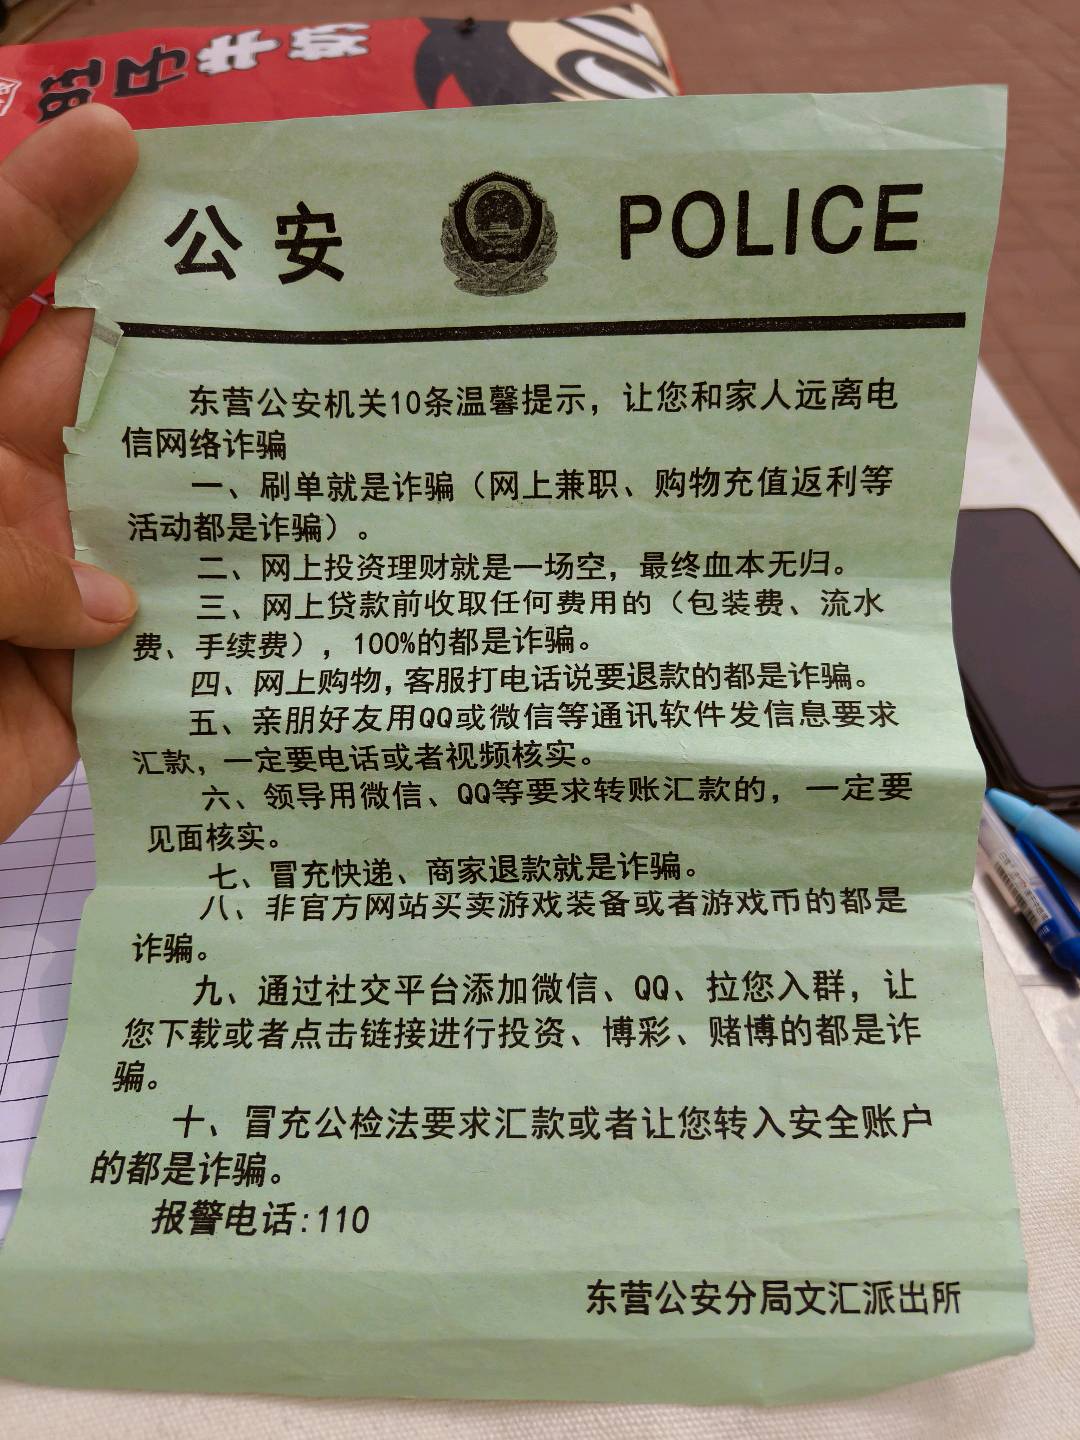 公安 POLICE
东营公安机关10条温馨提示，让您和家人远离电
信网络诈骗
一、刷单就是诈骗（网上兼职、购物充值返利等
活动都是诈骗）。
二、网上投资理财就是一场空，最终血本无归。
三、网上贷款前收取任何费用的（包装费、流水
费、手续费），100%的都是诈骗。
四、网上购物，客服打电话说要退款的都是诈骗。
五、亲朋好友用QQ或微信等通讯软件发信息要求
汇款，一定要电话或者视频核实。
六、领导用微信、QQ等要求转账汇款的，一定要
见面核实。
七、冒充快递、商家退款就是诈骗。
八、非官方网站买卖游戏装备或者游戏币的都是
诈骗。
九、通过社交平台添加微信、QQ、拉您入群，让
您下载或者点击链接进行投资、博彩、赌博的都是诈
骗。
十、冒充公检法要求汇款或者让您转入安全账户
的都是诈骗。
报警电话:110
东营公安分局文汇派出所